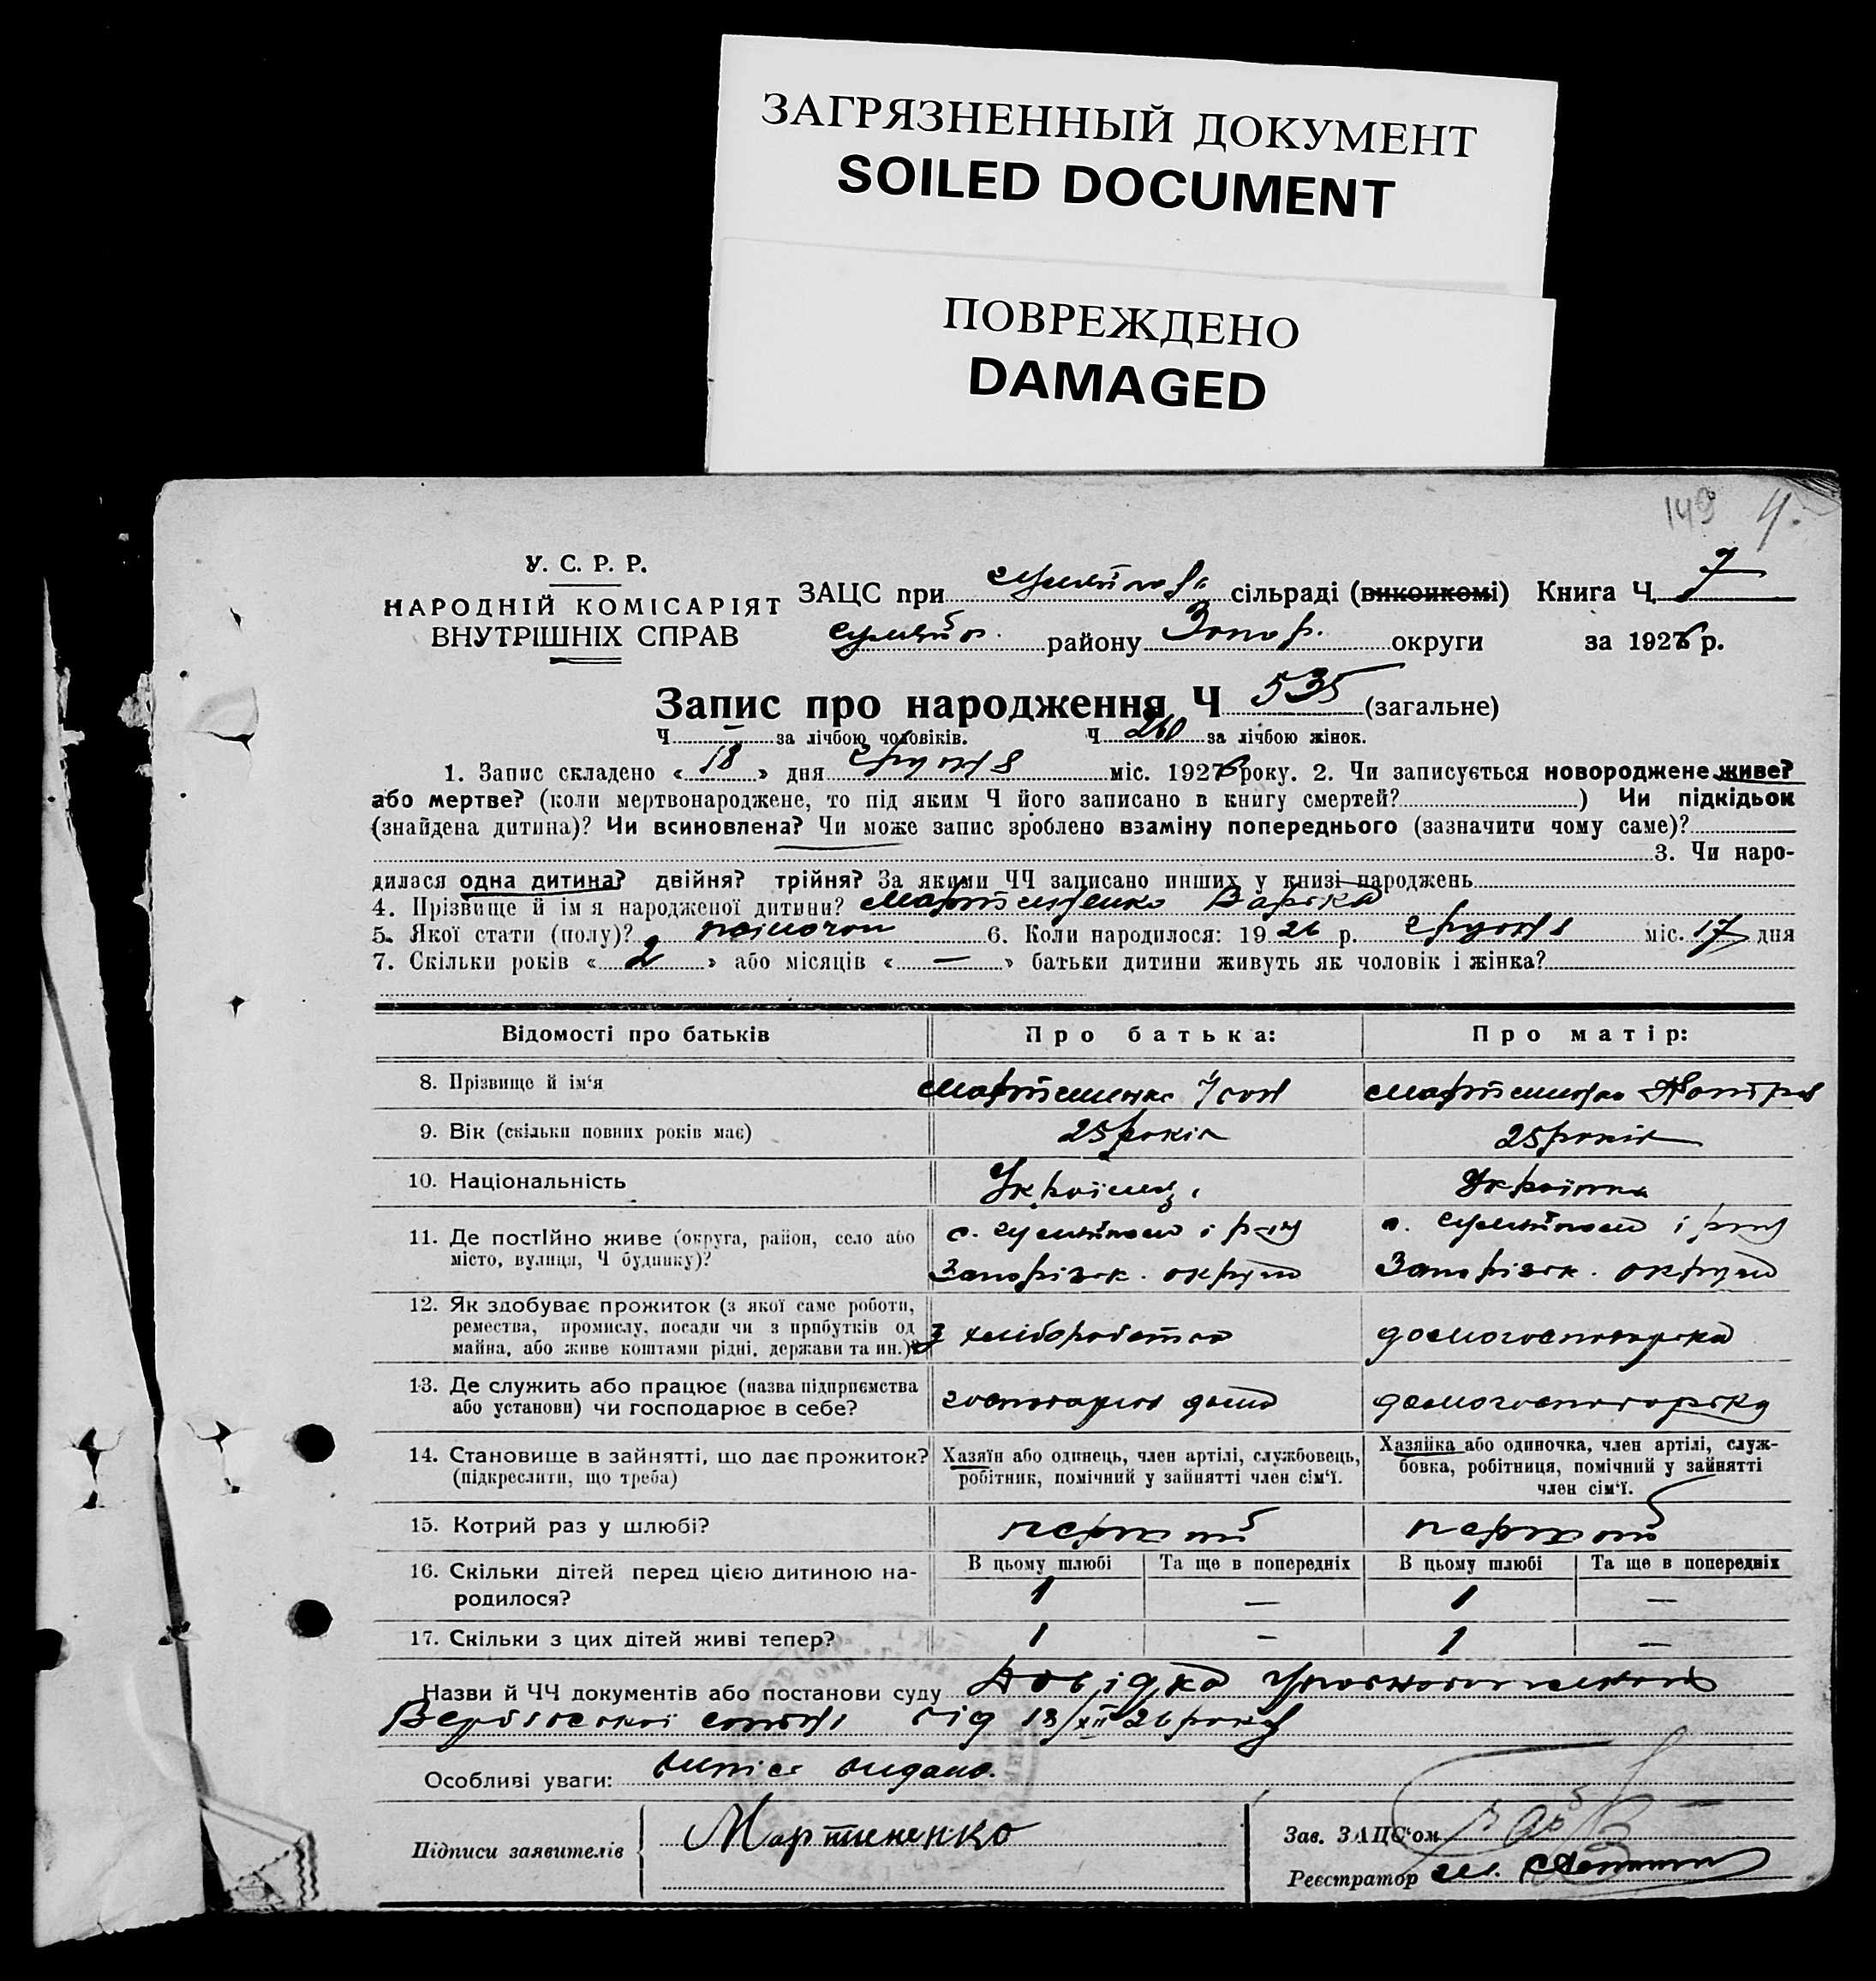 ЗАГРЯЗНЕННЫЙ ДОКУМЕНТ
SOILED DOCUMENT
ПОВРЕЖДЕНО
DAMAGED
149 4.
У. С. Р. Р.
НАРОДНІЙ КОМІСАРІЯТ
ВНУТРІШНІХ СПРАВ
ЗАЦС при сільраді (виконкомі) Книга Ч. 7
району Запор. округи за 1926 р.
Запис про народження Ч 535 (загальне)
Ч. — за лічбою чоловіків. Ч. 260 за лічбою жінок.
1. Запис складено « 18 » дня грудня міс. 1926 року. 2. Чи записується новороджене живе?
або мертве? (коли мертвонароджене, то під яким Ч його записано в книгу смертей? ) Чи підкідьок
(знайдена дитина)? Чи всиновлена? Чи може запис зроблено взаміну попереднього (зазначити чому саме)?
3. Чи наро-
дилася одна дитина? двійня? трійня? За якими ЧЧ записано инших у книзі народжень
4. Прізвище й ім я народженої дитини? Мартиненко Варька
5. Якої стати (полу)? жіночої 6. Коли народилося: 19 26 р. грудня міс. 17 дня
7. Скільки років « 2 » або місяців « — » батьки дитини живуть як чоловік і жінка?
Відомості про батьків Про батька: Про матір:
8. Прізвище й ім‘я Мартиненко Мартиненко
9. Вік (скільки повних років має) 25 років 25 років
10. Національність Українець Українка
11. Де постійно живе (округа, район, село або
місто, вулиця, Ч будинку)?
с. і р-ну с. і р-ну
Запорізьк. округи Запорізьк. округи
12. Як здобуває прожиток (з якої саме роботи,
ремества, промислу, посади чи з прибутків од
майна, або живе коштами рідні, держави та ин.)?
з хліборобства домогосподарка
13. Де служить або працює (назва підприємства
або установи) чи господарює в себе?
господарює дома домогосподарка
14. Становище в зайнятті, що дає прожиток?
(підкреслити, що треба)
Хазяїн або одинець, член артілі, службовець,
робітник, помічний у зайнятті член сім‘ї.
Хазяйка або одиночка, член артілі, служ-
бовка, робітниця, помічний у зайнятті
член сім‘ї.
15. Котрий раз у шлюбі? перший перший
16. Скільки дітей перед цією дитиною на-
родилося?
В цьому шлюбі Та ще в попередніх В цьому шлюбі Та ще в попередніх
1 — 1 —
17. Скільки з цих дітей живі тепер? 1 — 1 —
Назви й ЧЧ документів або постанови суду Довідка
від 18/XII 26 року
Особливі уваги: випис видано.
Підписи заявителів Мартиненко
Зав. ЗАЦС‘ом
Реєстратор